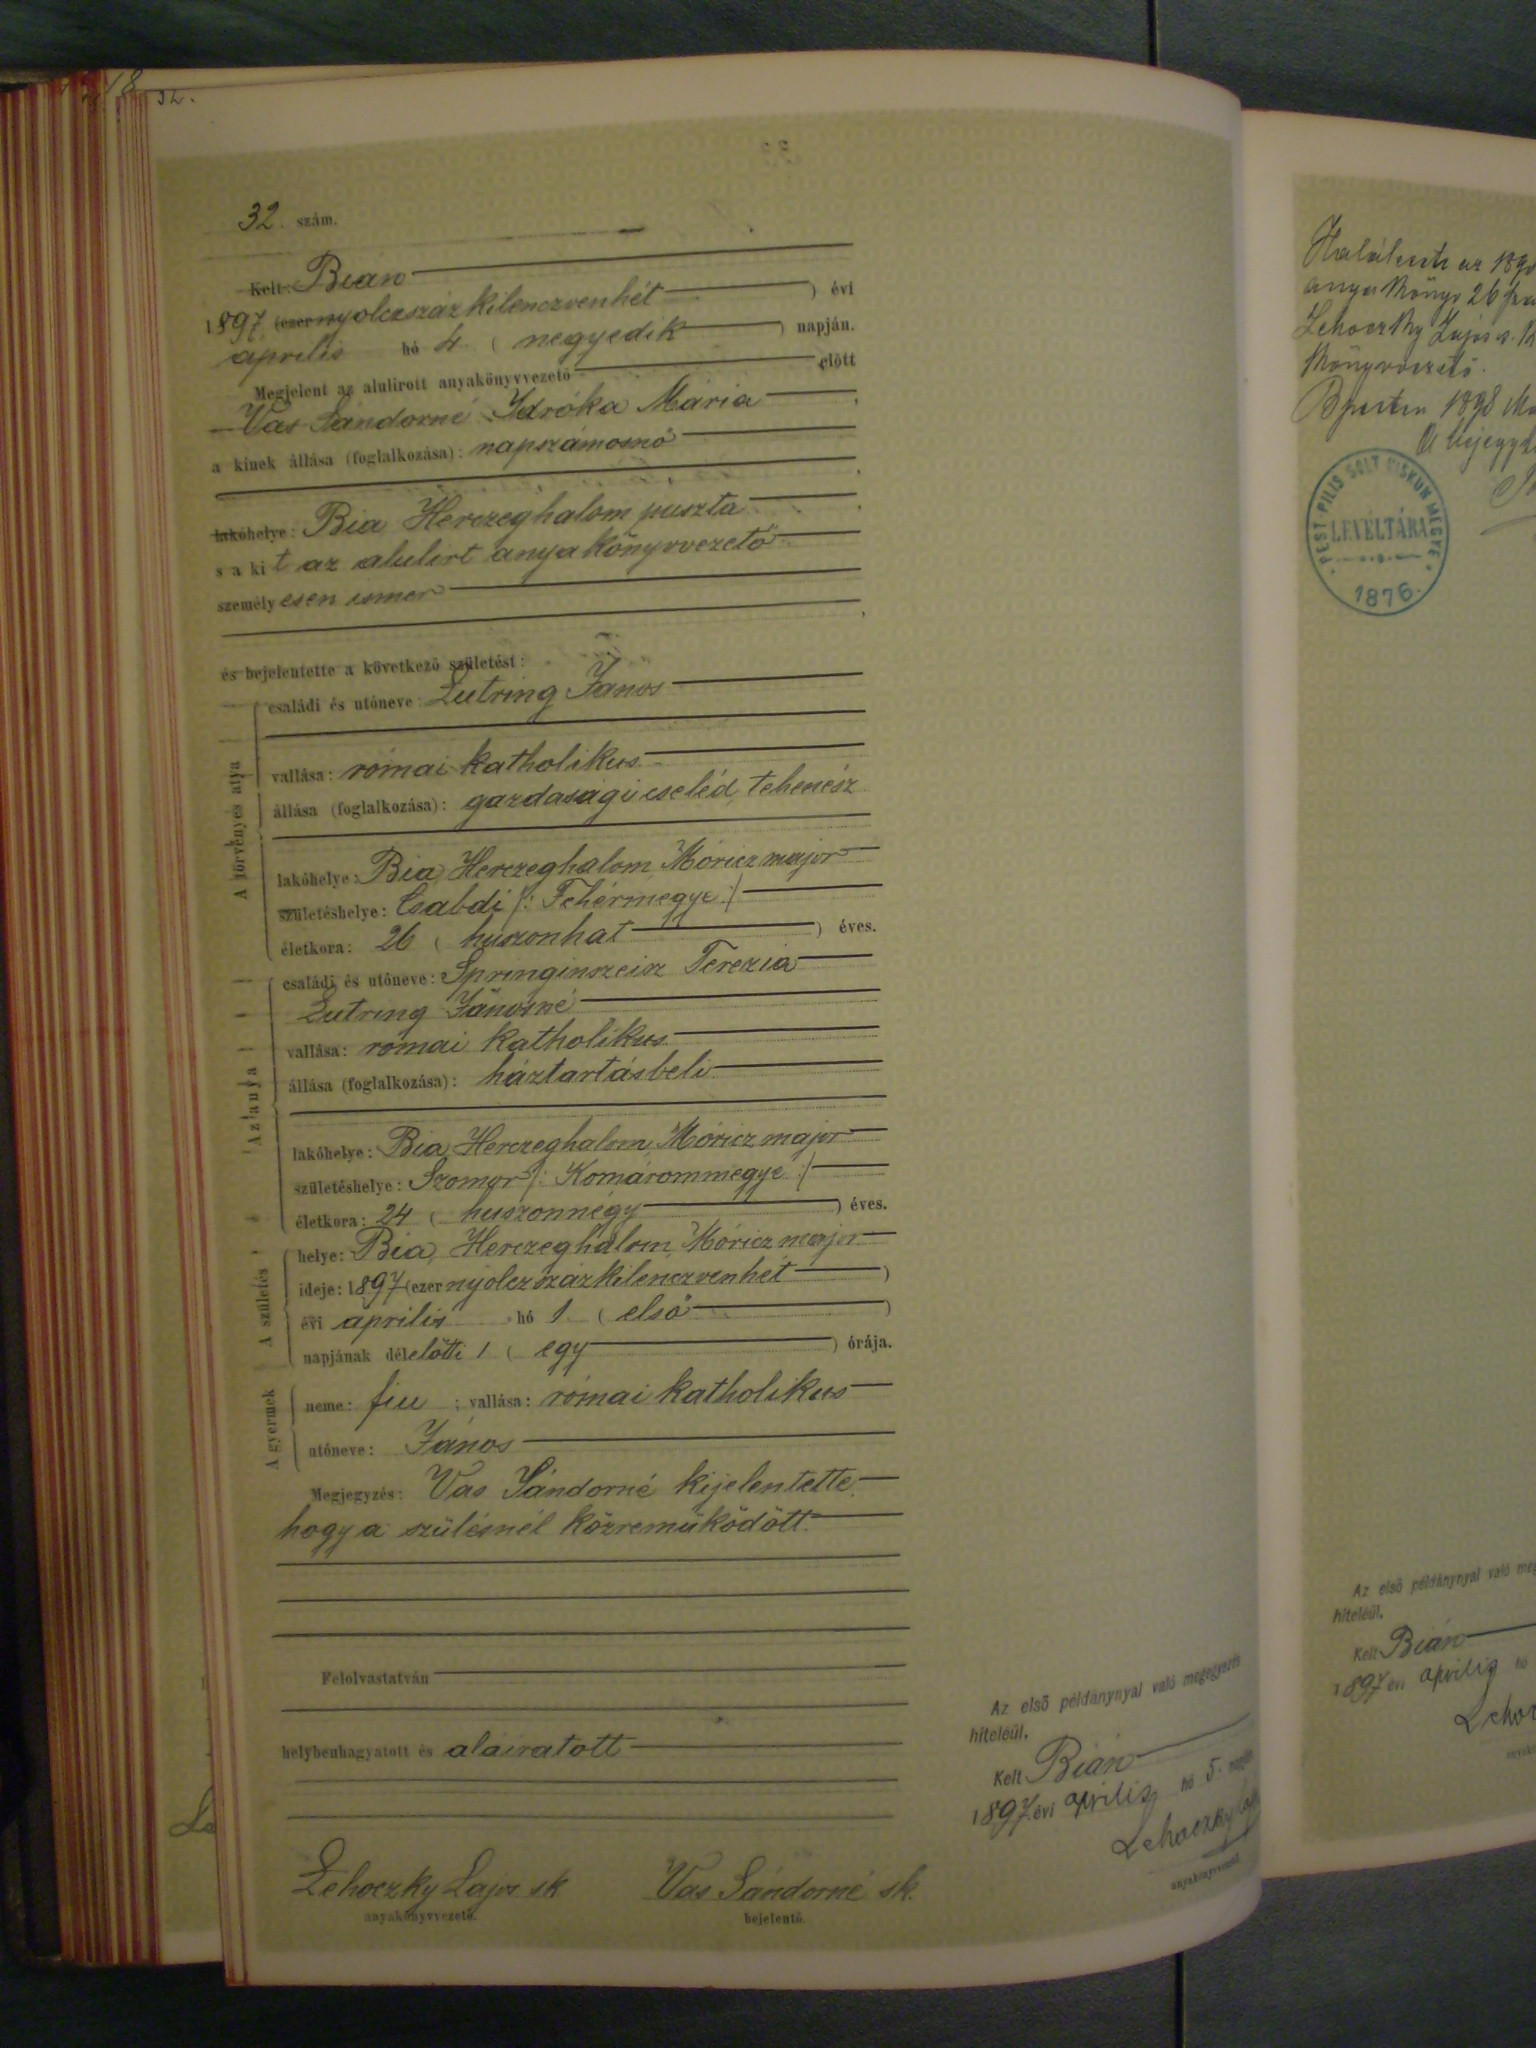 32.
32. szám.
Kelt: Bián
1897 (ezernyolczszázkilenczvenhét ) évi
április hó 4. ( negyedik ) napján.
Megjelent az alulirott anyakönyvvezető előtt
Vas Sándorné Idróka Mária ,
a kinek állása (foglalkozása): napszámosnő
,
lakóhelye: Bia Herczeghalom puszta ,
s a kit az alulirt anyakönyvvezető
személyesen ismer
,
és bejelentette a következő születést:
A törvényes atya
családi és utóneve: Lutring János
vallása: római katholikus
állása (foglalkozása): gazdasági cseléd, tehenész
lakóhelye: Bia, Herczeghalom, Móricz major
születéshelye: Csabdi /: Fehérmegye :/
életkora: 26 ( huszonhat ) éves.
Az anya
családi és utóneve: Springinszeisz Terezia
Lutring Jánosné
vallása: római katholikus
állása (foglalkozása): háztartásbeli
lakóhelye: Bia, Herczeghalom, Móricz major
születéshelye: Szomor /: Komárommegye :/
életkora: 24 ( huszonnégy ) éves.
A születés
helye: Bia, Herczeghalom, Móricz major
ideje: 1897 (ezernyolczszázkilenczvenhét )
évi április hó 1. ( első )
napjának délelőtti 1 ( egy ) órája.
A gyermek
neme: fiu ; vallása: római katholikus
utóneve: János
Megjegyzés: Vas Sándorné kijelentette,
hogy a szülésnél közreműködött.
Felolvastatván
helybenhagyatott és aláiratott
Lehoczky Lajos sk
anyakönyvvezető.
Vas Sándorné sk.
bejelentő.
Az első példánynyal való megegyezés
hiteléűl.
Kelt Bián
1897. évi április hó 5. napján
Lehoczky Lajos
anyakönyvvezető
1890
anyakönyv 26
Lehoczky Lajos s. k.
könyvvezető.
Bpesten 1898
PEST-PILIS SOLT KISKUN MEGYE
LEVÉLTÁRA
1876.
Az első példánynyal való
hiteléűl.
Kelt Bián
1897 évi április hó